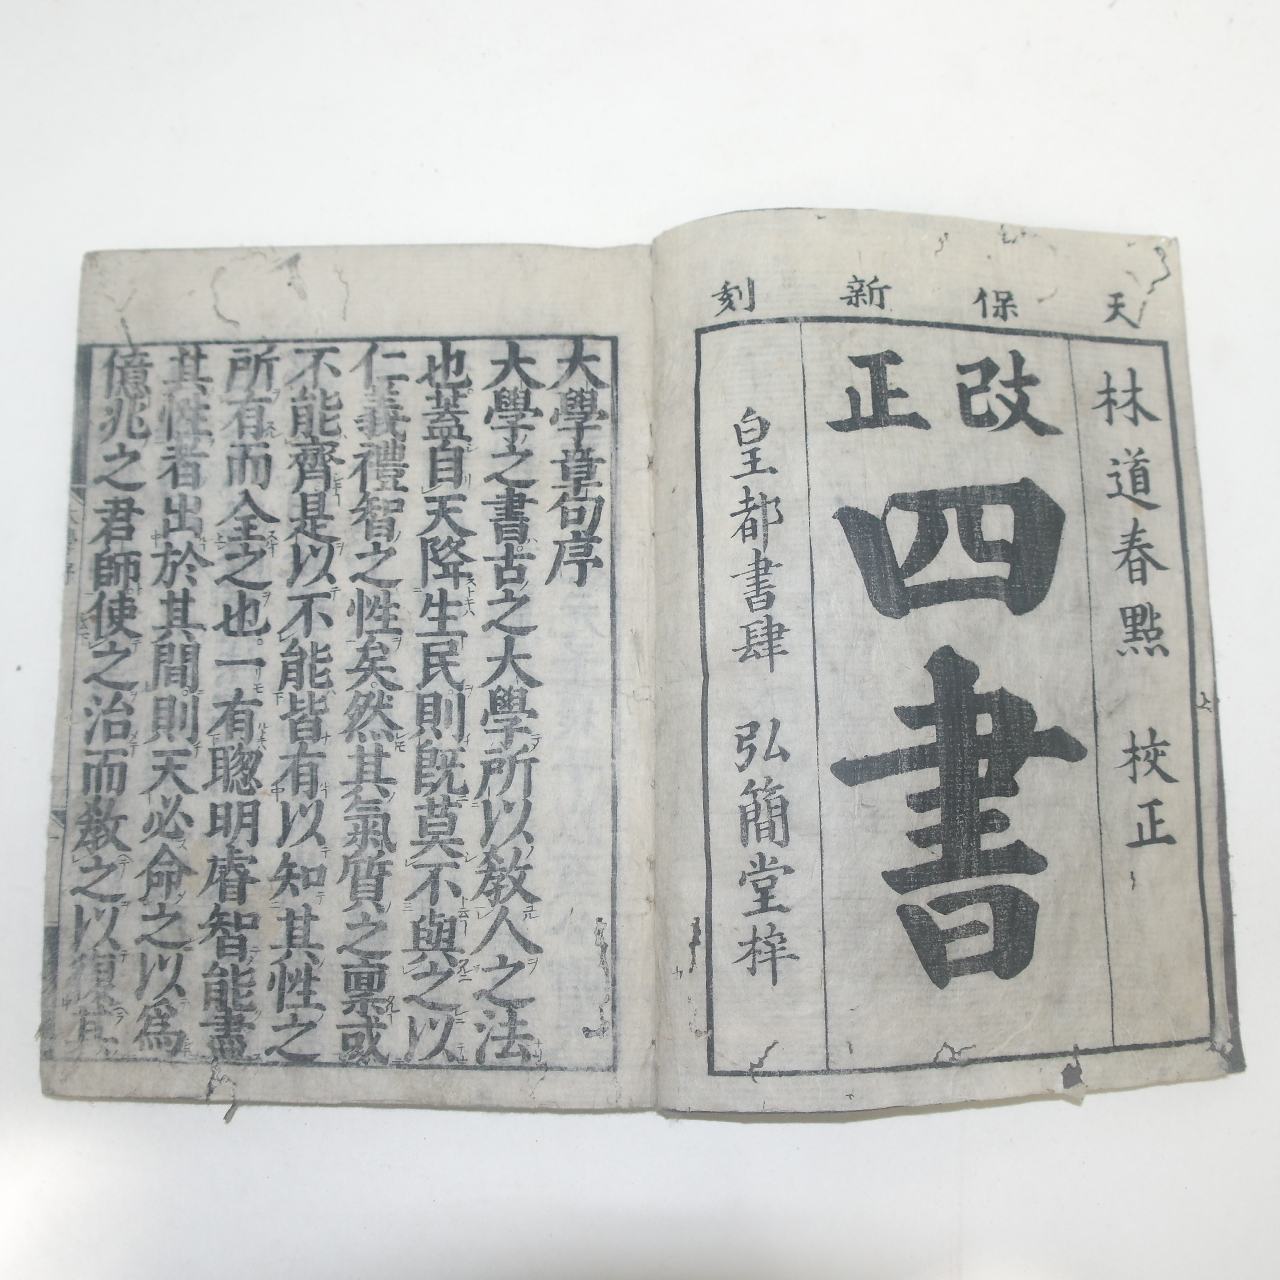 天保新刻
林道春點 校正
改正
四書
皇都書肆 弘簡堂梓
大學章句序
大學之書古之大學所以教人之法
也蓋自天降生民則既莫不與之以
仁義禮智之性矣然其氣質之稟或
不能齊是以不能皆有以知其性之
所有而全之也一有聰明睿智能盡
其性者出於其間則天必命之以爲
億兆之君師使之治而教之以復其